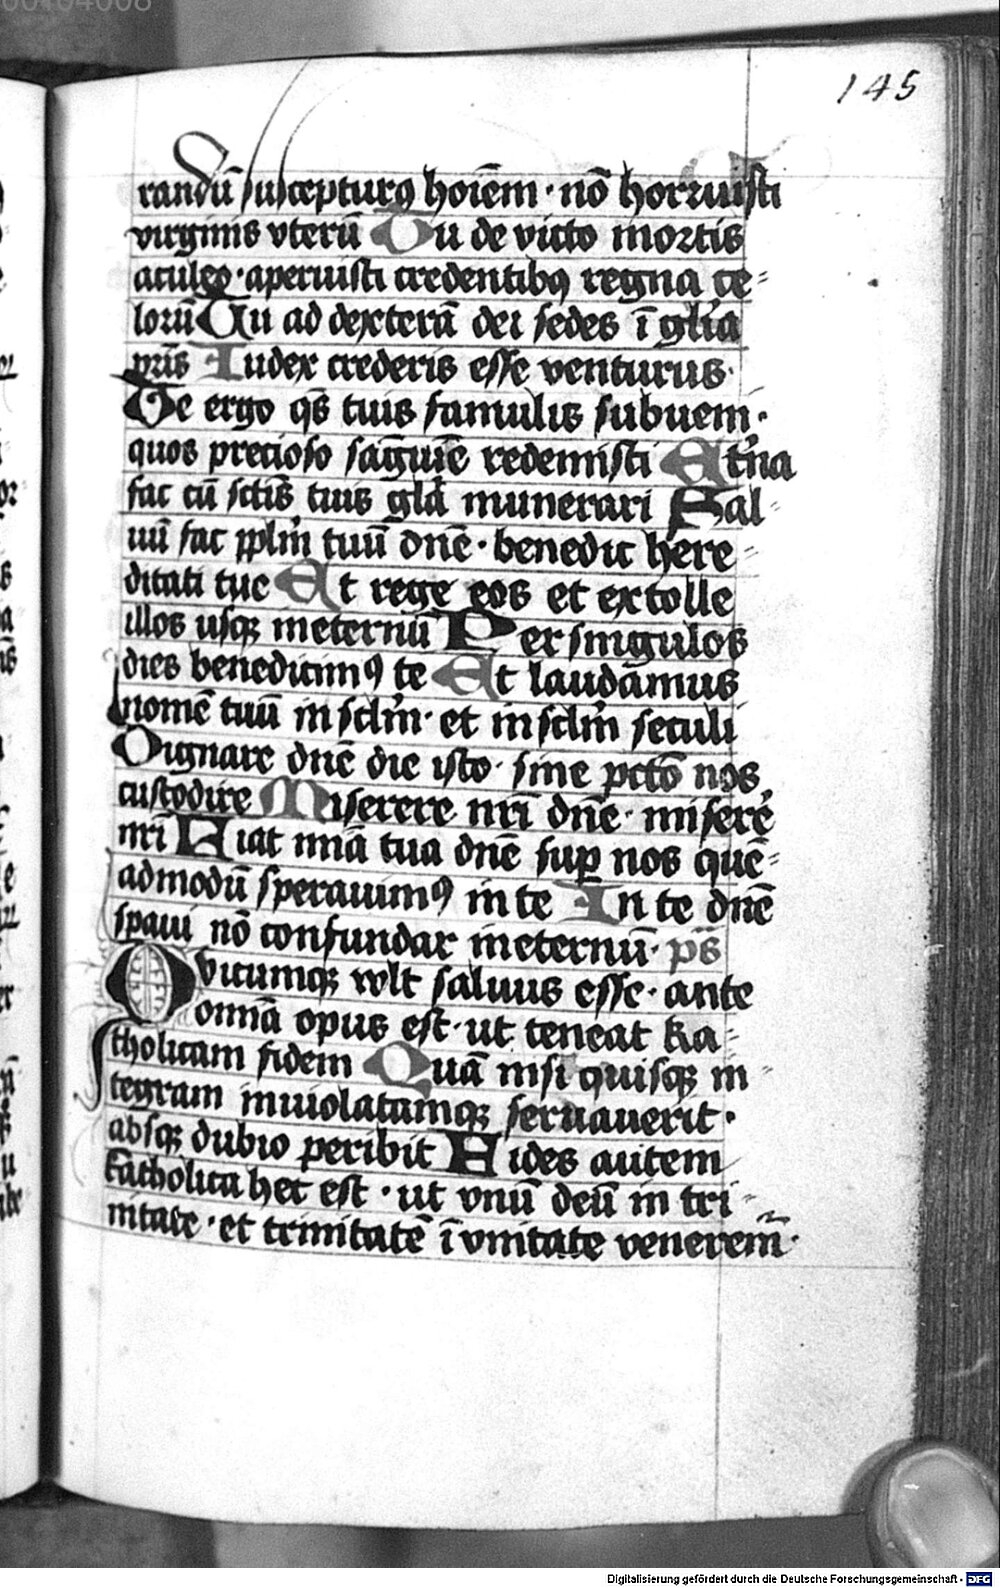 00104008
145
randū suscepturꝰ hoīem · nō horruisti
virginis vterū Tu de victo mortis
aculeo · aperuisti credentibꝰ regna ce-
lorū Tu ad dexterā dei sedes ī glīa
pr̄is Iudex crederis esse venturus ·
Te ergo qs̄ tuis famulis subueni ·
quos precioso sāguīe redemisti Et̄na
fac cū sctīs tuis glā munerari Sal-
uū fac pplm̄ tuū dn̄e · benedic here-
ditati tue Et rege eos et extolle
illos usqꝫ in eternū Per singulos
dies benedicimꝰ te Et laudamus
nomē tuū in sclm̄ · et in sclm̄ seculi
Dignare dn̄e die isto · sine pctō nos
custodire Miserere nr̄i dn̄e · miserē
nr̄i Fiat mīa tua dn̄e suꝑ nos quē-
admodū sperauimꝰ in te In te dn̄e
spaui nō confundar in eternū · ps̄
Quicumqꝫ vult saluus esse · ante
omnā opus est · ut teneat ka-
tholicam fidem Quā nisi quisqꝫ in-
tegram inuiolatamqꝫ seruauerit ·
absqꝫ dubio peribit Fides autem
katholica hec est · ut vnū deū in tri-
nitate · et trinitatē ī vnitate venerem̄ ·
Digitalisierung gefördert durch die Deutsche Forschungsgemeinschaft - DFG